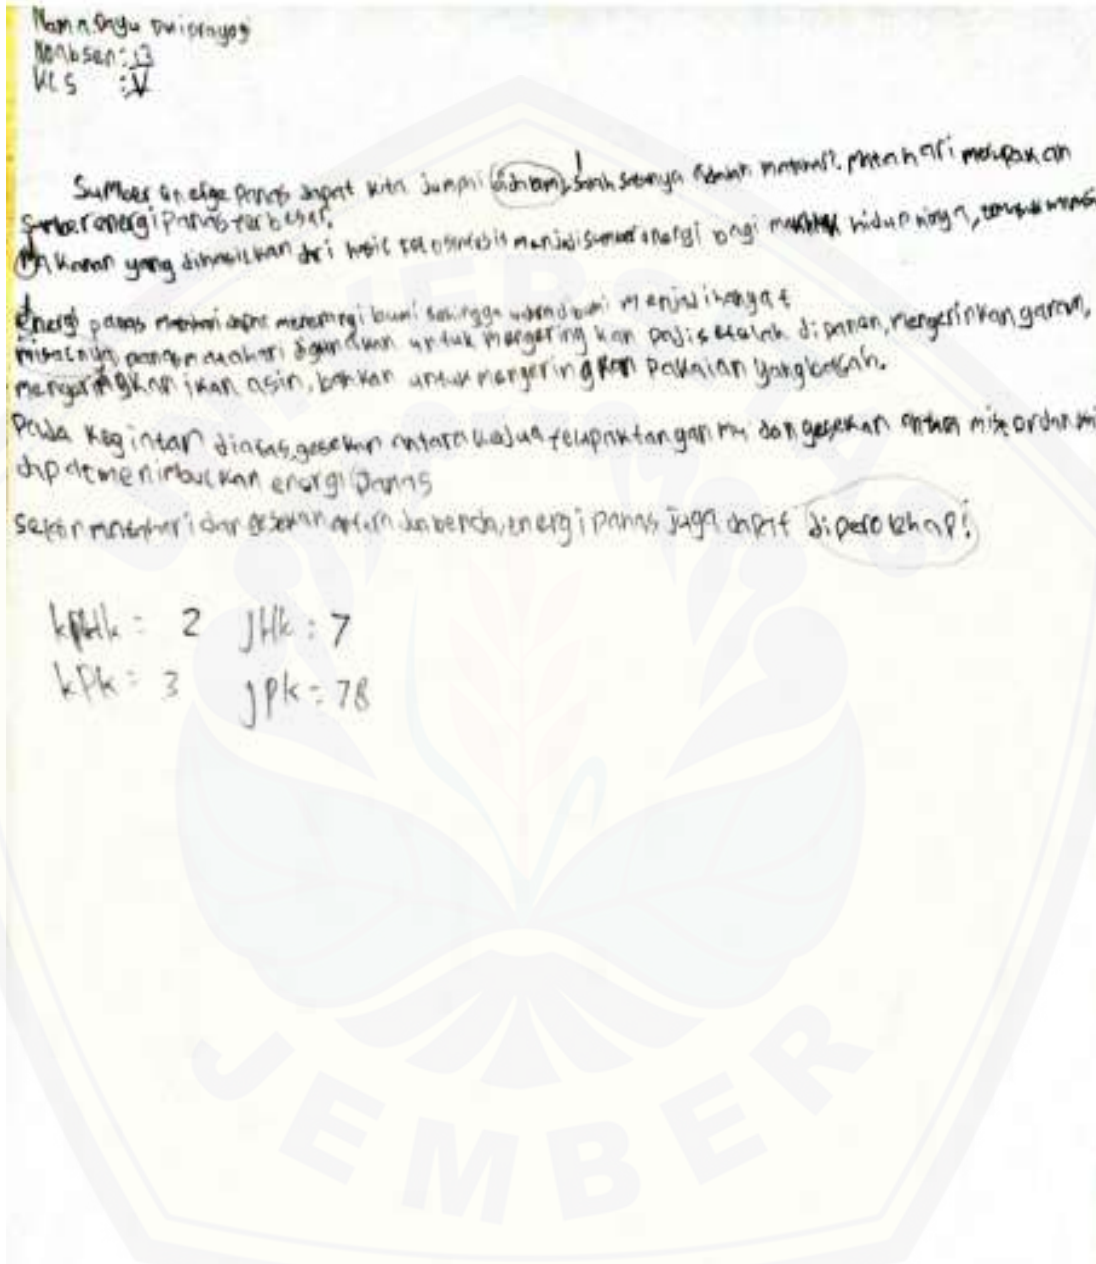 Nama: Dayu Dwiprayogi
Noabsen: 13
KLS : V
Sumber energe Panas dapat kita jumpai didalam, salah satunya adalah matahari. Matahari merupakan
Sumber energi Panas terbesar.
Makanan yang dihasilkan dri hasil menjadi sumber energi bagi hidup
Energi panas matahari dapat menerangi bumi sehingga udara dibumi menjadi hangat
misalnya panas matahari digunakan untuk mengering kan padi setelah di panan, mengerinkan garam,
mengeringkan ikan asin, bahkan untuk mengering kan Pakaian yang basah.
Pada kegintan diatas, gesekan antara kedua telapak tangan mu dan gesekan antara
dapat menimbulkan energi panas
selain matahari dan gesekan antara dua benda, energi panas juga dapat diperoleh api
kpHk = 2 jHk : 7
kPk = 3 jPk = 78
UNIVERSITAS
JEMBER